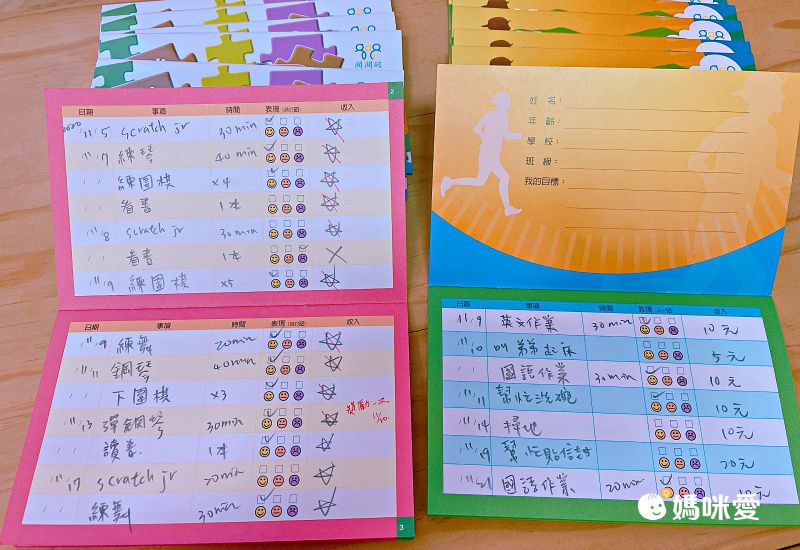 2
日期 事項 時間 表現(請打☑) 收入
2020 11/5 scratch jr 30 min ☆
11/7 練琴 40 min ☆
〃 練圍棋 ×4 ☆
〃 看書 1本 ☆
11/8 scratch jr 30min ☆
〃 看書 1本 ×
11/9 練圍棋 ×5 ☆
日期 事項 時間 表現(請打☑) 收入
11/9 練舞 20min ☆
11/11 鋼琴 40min ☆
〃 下圍棋 ×3 ☆
11/13 彈鋼琴 30min ☆
11/30
讀書 1本 ☆
11/17 scratch jr 20min ☆
練舞 30min ☆
3
姓名：
年齡：
學校：
班級：
我的目標：
日期 事項 時間 表現(請打☑) 收入
11/9 英文作業 30min 10元
11/10 叫弟弟起床 5元
〃 國語作業 30min 10元
11/11 幫忙洗碗 10元
11/14 掃地 10元
11/19 幫忙貼信封 20元
11/21 國語作業 20min 元
媽咪愛